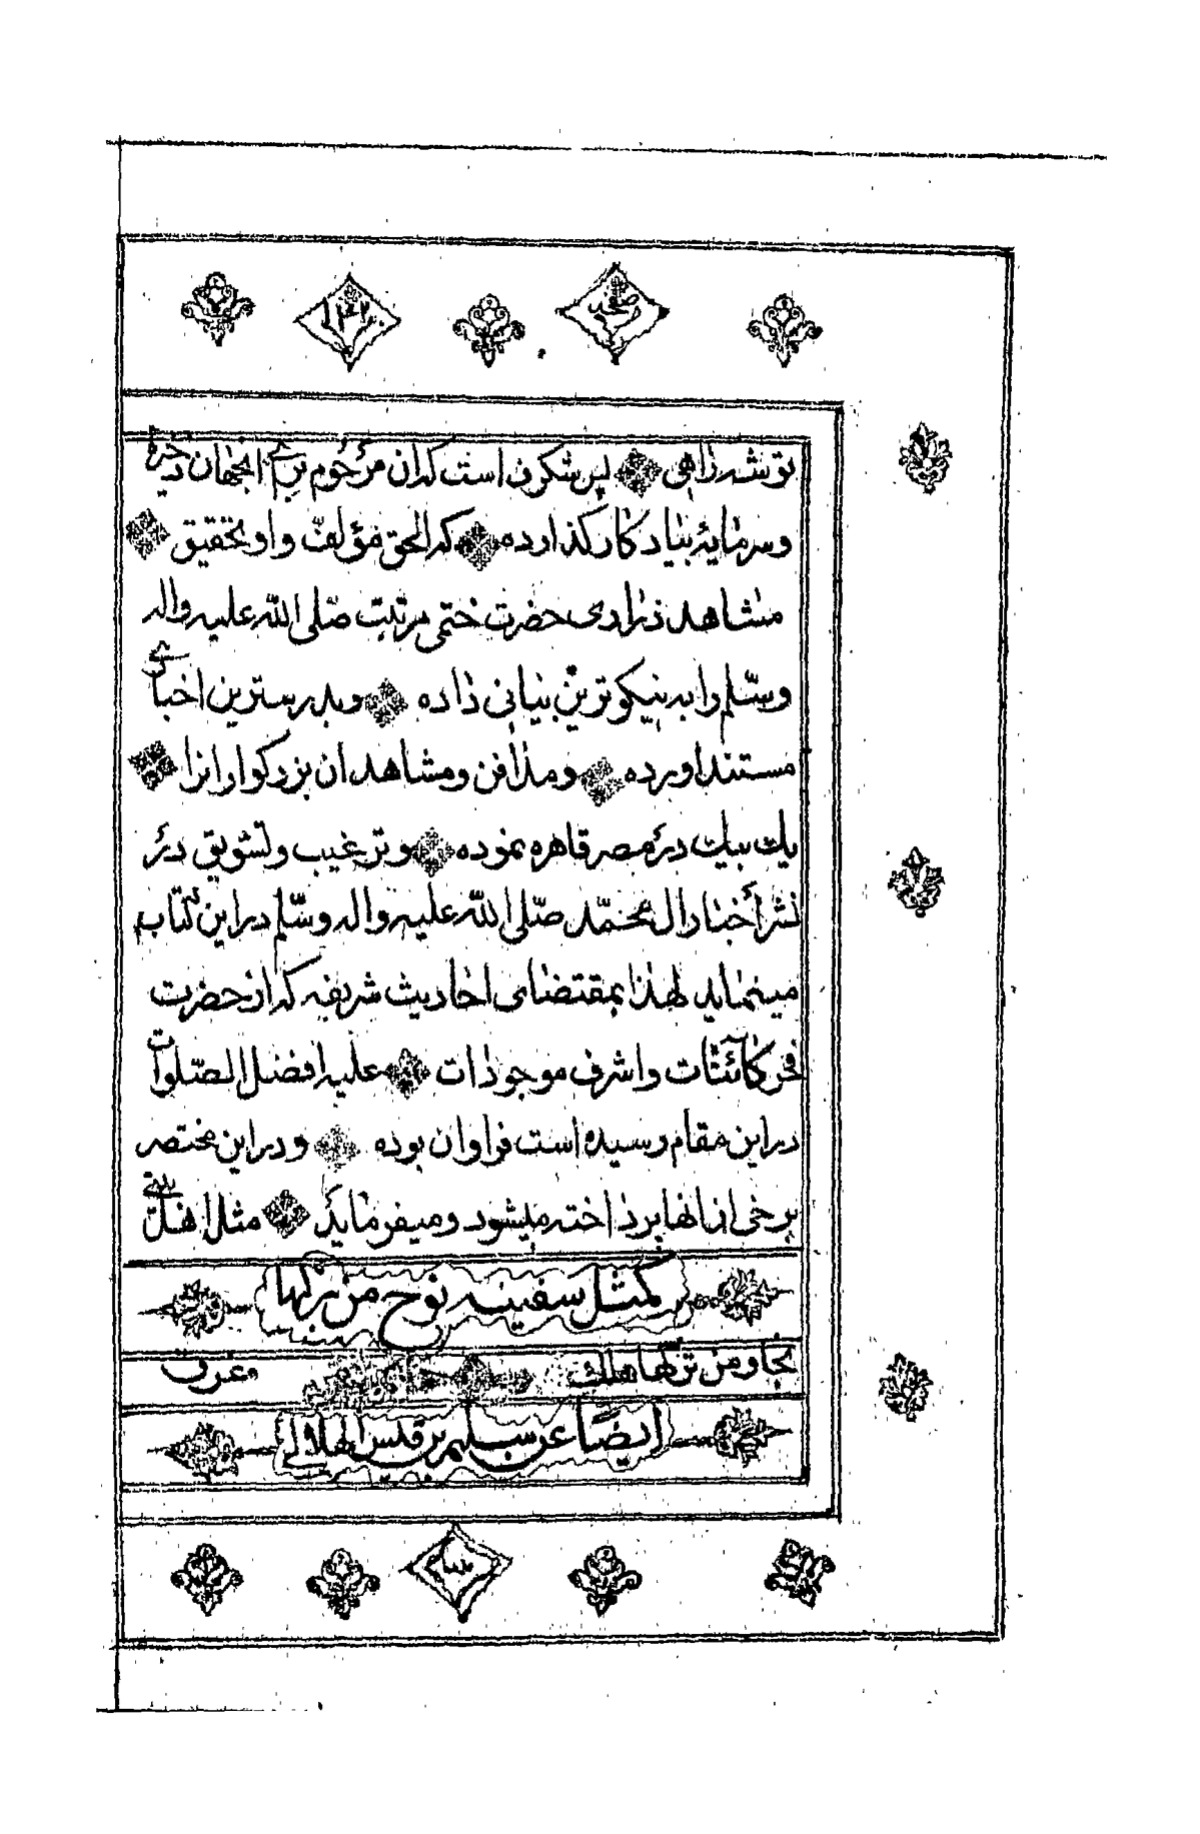 توشه راهی پس شگرف است که ان مرحوم برای انجهان ذخیره
وسرمایهٔ بنیاد کار گذارده که الحق مؤلف واو بتحقیق
مشاهد ذراری حضرت ختمی مرتبت صلی الله علیه واله
وسلم را به نیکوترین بیانی داده وبدرسترین اخباری
مستند اورده ومدافن ومشاهد ان بزرگوارانرا
یك بیك در مصر قاهره نموده وترغیب وتشویق در
نشر أخبار ال محمد صلی الله علیه واله وسلم در این کتاب
مینماید لهذا بمقتضای احادیث شریفه که از حضرت
فخر کائنات واشرف موجودات علیه افضل الصلوات
در این مقام رسیده است فراوان بوده ودر این مختصر
برخی از انها پرداخته میشود ومیفرماید مثل اهل بیتی
کمثل سفینه نوح من رکبها
نجا ومن ترکها هلك وغرق
ایضا عن سلیم بن قیس الهلالی